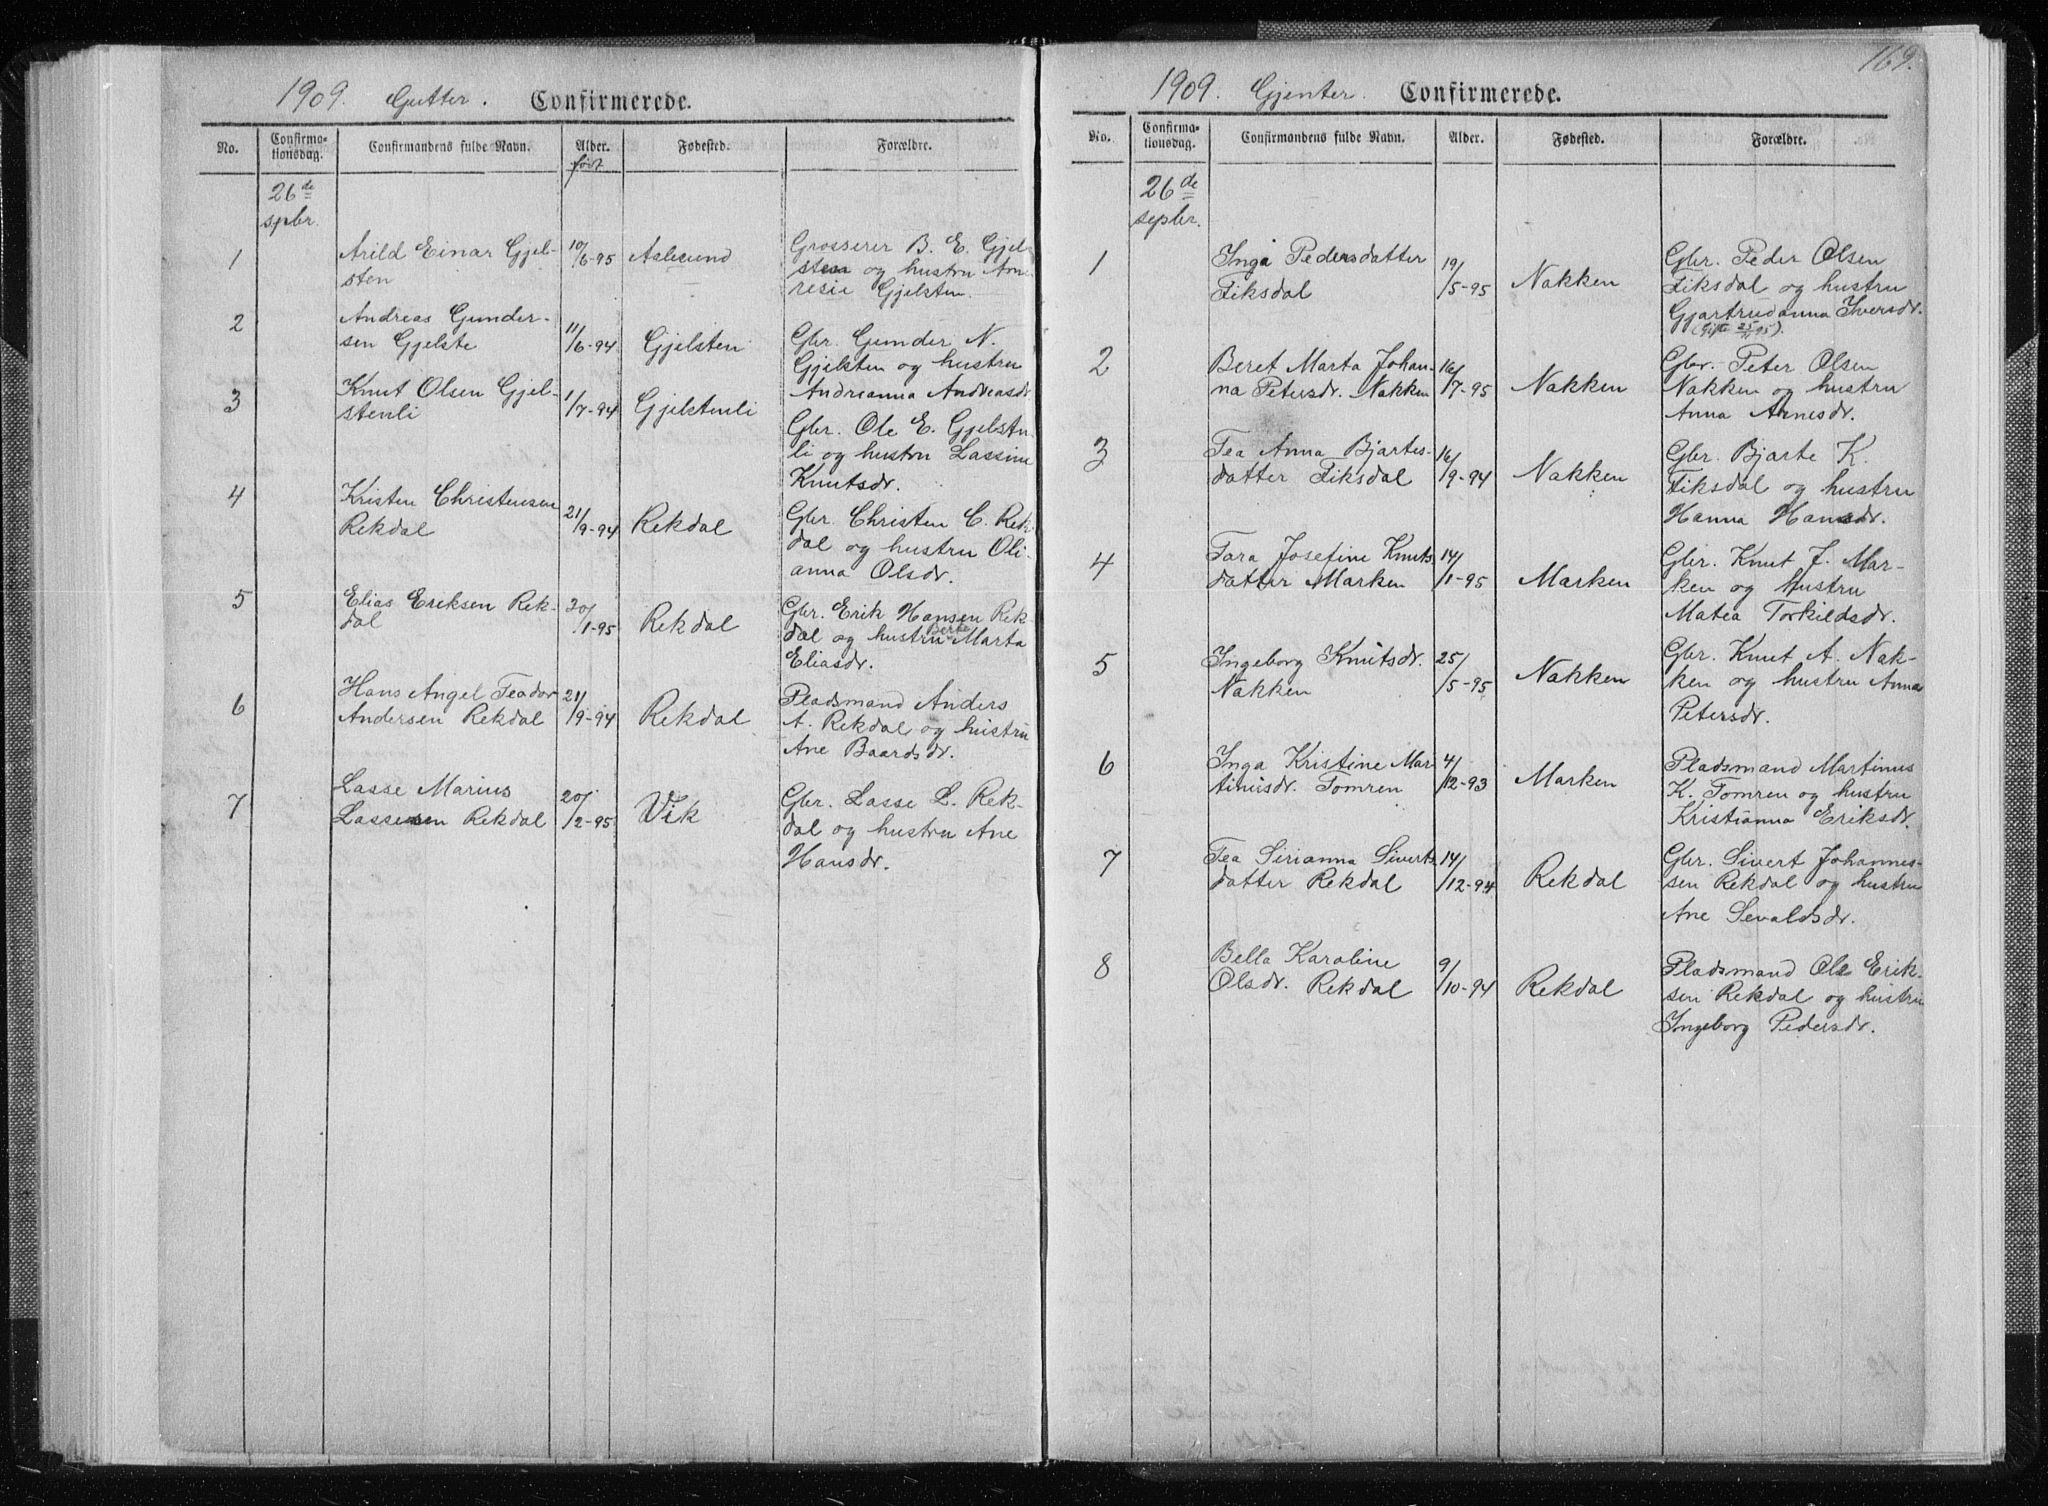 1909. Gutter. Confirmerede.
No. Confirma-tionsdag. Confirmandens fulde Navn. Alder. født Fødested. Forældre.
26de
spbr.
1 Arild Einar Gjel-
sten 10/6-95 Aalesund Grosserer B. E. Gjel-
sten og hustru An-
resie Gjelsten.
2 Andreas Gunder-
sen Gjelste 11/6-94 Gjelsten Gbr. Gunder N.
Gjelsten og hustru
Andreanna Andreasdr.
3 Knut Olsen Gjel-
stenli 1/7-94 Gjelstenli Gbr. Ole E. Gjelsten-
li og hustru Lassine
Knutsdr.
4 Kristen Christensen
Rekdal 21/9-94 Rekdal Gbr. Christen C. Rek-
dal og hustru Oli-
anna Olsdr.
5 Elias Eriksen Rek-
dal 30/1-95 Rekdal Gbr. Erik Hansen Rek
dal og hustru Berte Marta
Eliasdr.
6 Hans Angel Teodor
Andersen Rekdal 21/9-94 Rekdal Pladsmand Anders
A. Rekdal og hustru
Ane Baardsdr.
7 Lasse Marius
Lassesen Rekdal 20/2-95 Vik Gbr. Lasse L. Rek-
dal og hustru Ane
Hansdr.
169.
1909. Gjenter. Confirmerede.
No. Confirma-tionsdag. Confirmandens fulde Navn. Alder. Fødested. Forældre.
26de
sepbr.
1 Inga Pedersdatter
Fiksdal 19/5-95 Nakken Gbr. Peder Olsen
Fiksdal og hustru
Gjartrudanna Iversdr.
(Gifte 25/11 95).
2 Beret Marta Johan-
na Petersdr. Nakken 16/7-95 Nakken Gbr. Peter Olsen
Nakken og hustru
Anna Arnesdr.
3 Tea Anna Bjartes-
datter Fiksdal 16/9-94 Nakken Gbr. Bjarte K.
Fiksdal og hustru
Hanna Hansdr.
4 Tora Josefine Knuts
datter Marken 14/1-95 Marken Gbr. Knut J. Mar-
ken og hustru
Matea Torkildsdr.
5 Ingeborg Knutsdr.
Nakken 25/5-95 Nakken Gbr. Knut A. Nak-
ken og hustru Anna
Petersdr.
6 Inga Kristine Mar
tinusdr. Tomren 4/12-93 Marken Pladsmand Martinus
K. Tomren og hustru
Kristianna Eriksdr.
7 Tea Sirianna Siverts
datter Rekdal 14/12-94 Rekdal Gbr. Sivert Johannes-
sen Rekdal og hustru
Ane Sevaldsdr.
8 Bella Karoline
Olsdr. Rekdal 9/10-94 Rekdal Pladsmand Ole Erik-
sen Rekdal og hustru
Ingeborg Pedersdr.